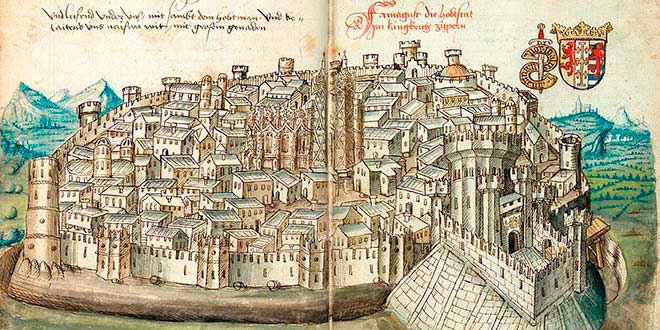 vnd vnder vns mit sambt dem hobtman vnd be=
laitend vns mit grossen genaden
Famagust die hobstat
Im küngkrich zippern